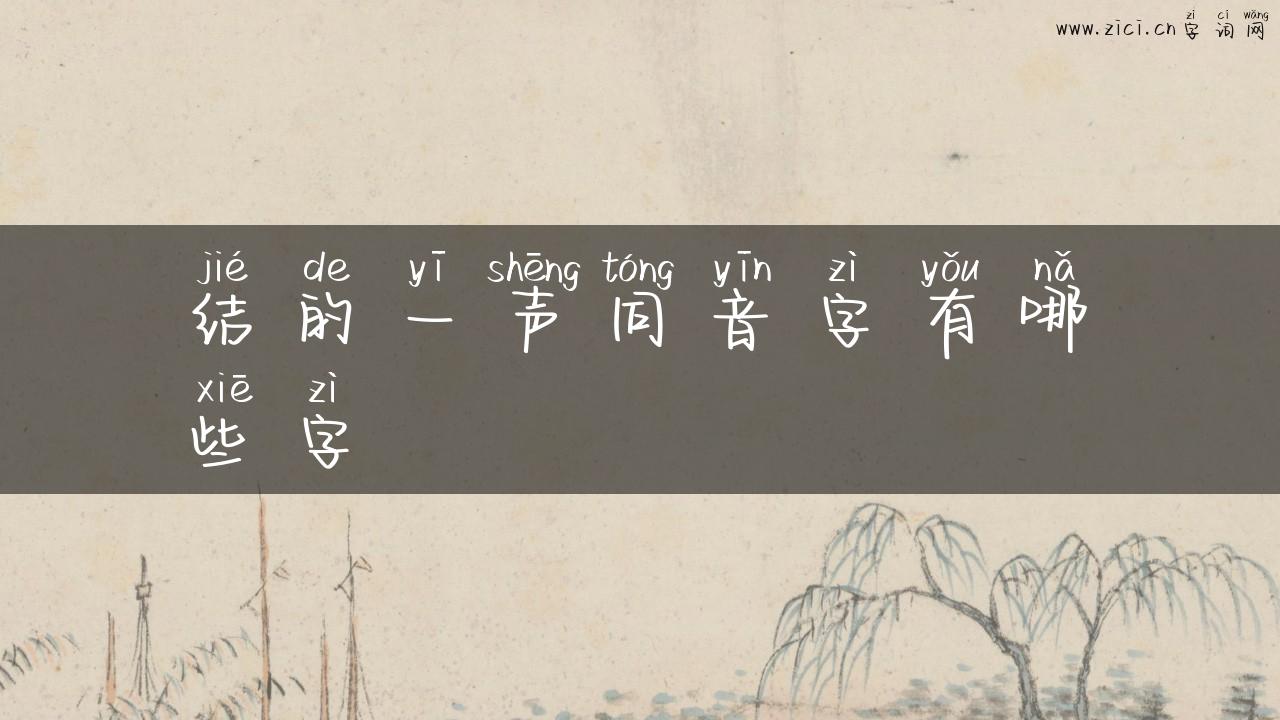 zì cí wǎng
www.zici.cn 字词网
jié de yī shēng tóng yīn zì yǒu nǎ
结的一声同音字有哪
xiē zì
些字